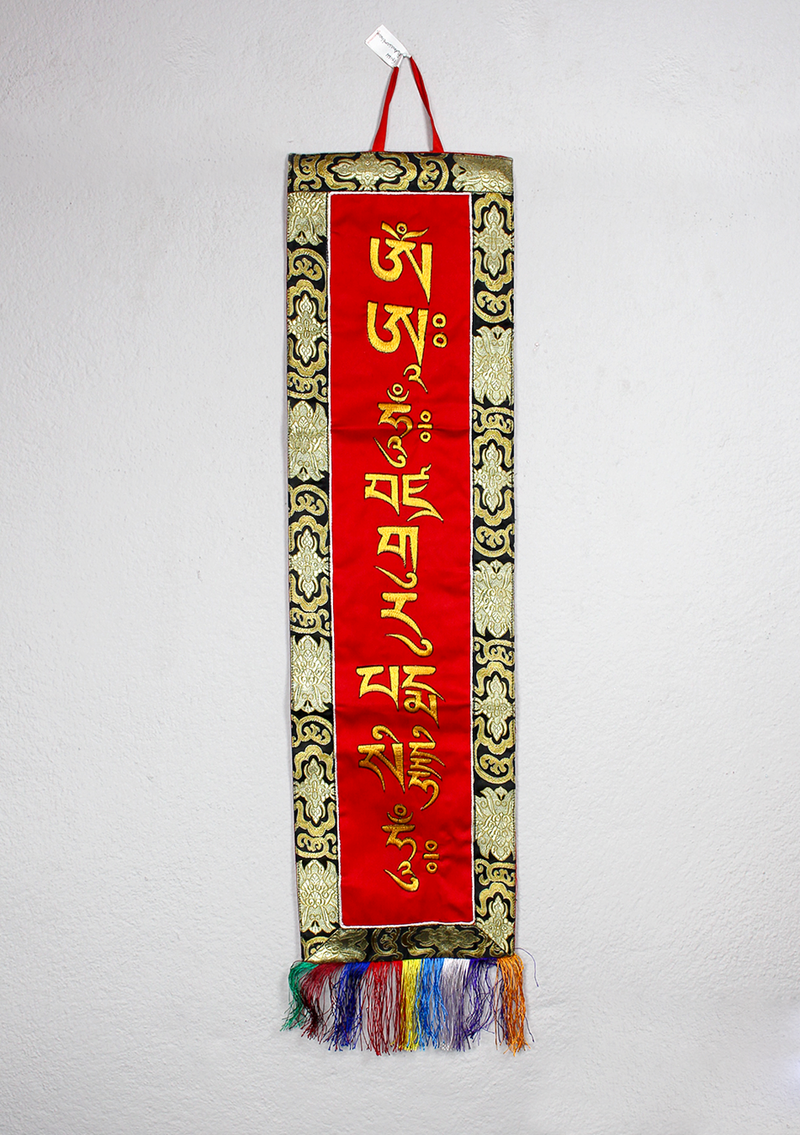 ཨོཾ
ཨཱཿ
ཧཱུྃ༔
བཛྲ
གུ
རུ
པདྨ
སིདྡྷི
ཧཱུྃ༔